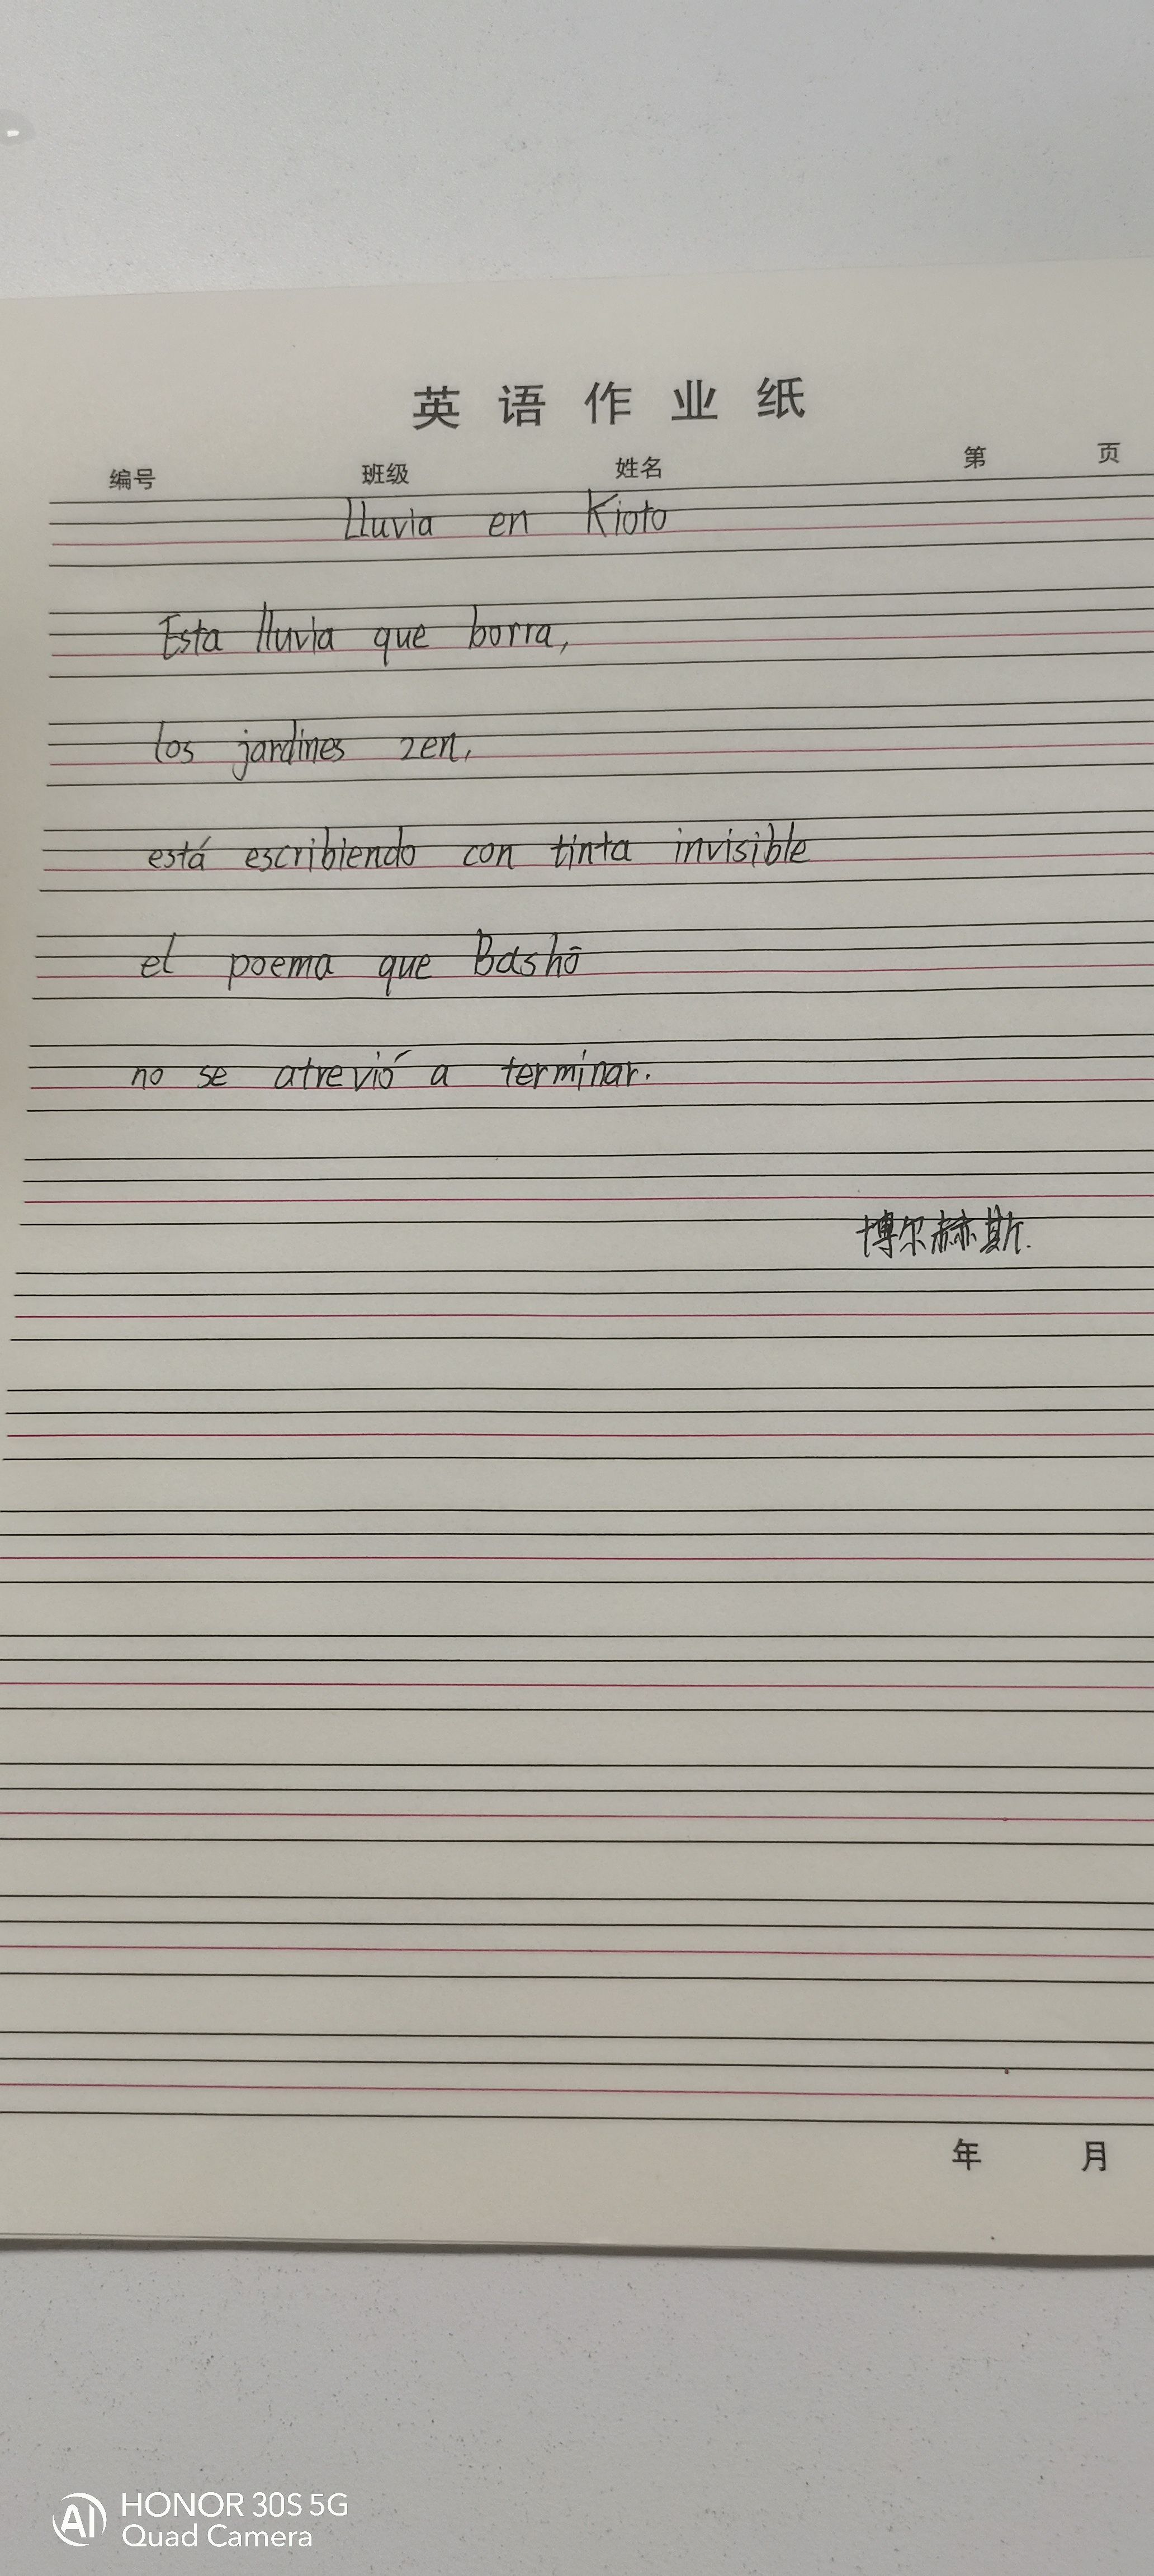 英语作业纸
编号 班级 姓名 第 页
Lluvia en Kioto
Esta lluvia que borra,
los jardines zen,
está escribiendo con tinta invisible
el poema que Bashō
no se atrevió a terminar.
博尔赫斯.
年 月
AI HONOR 30S 5G
Quad Camera